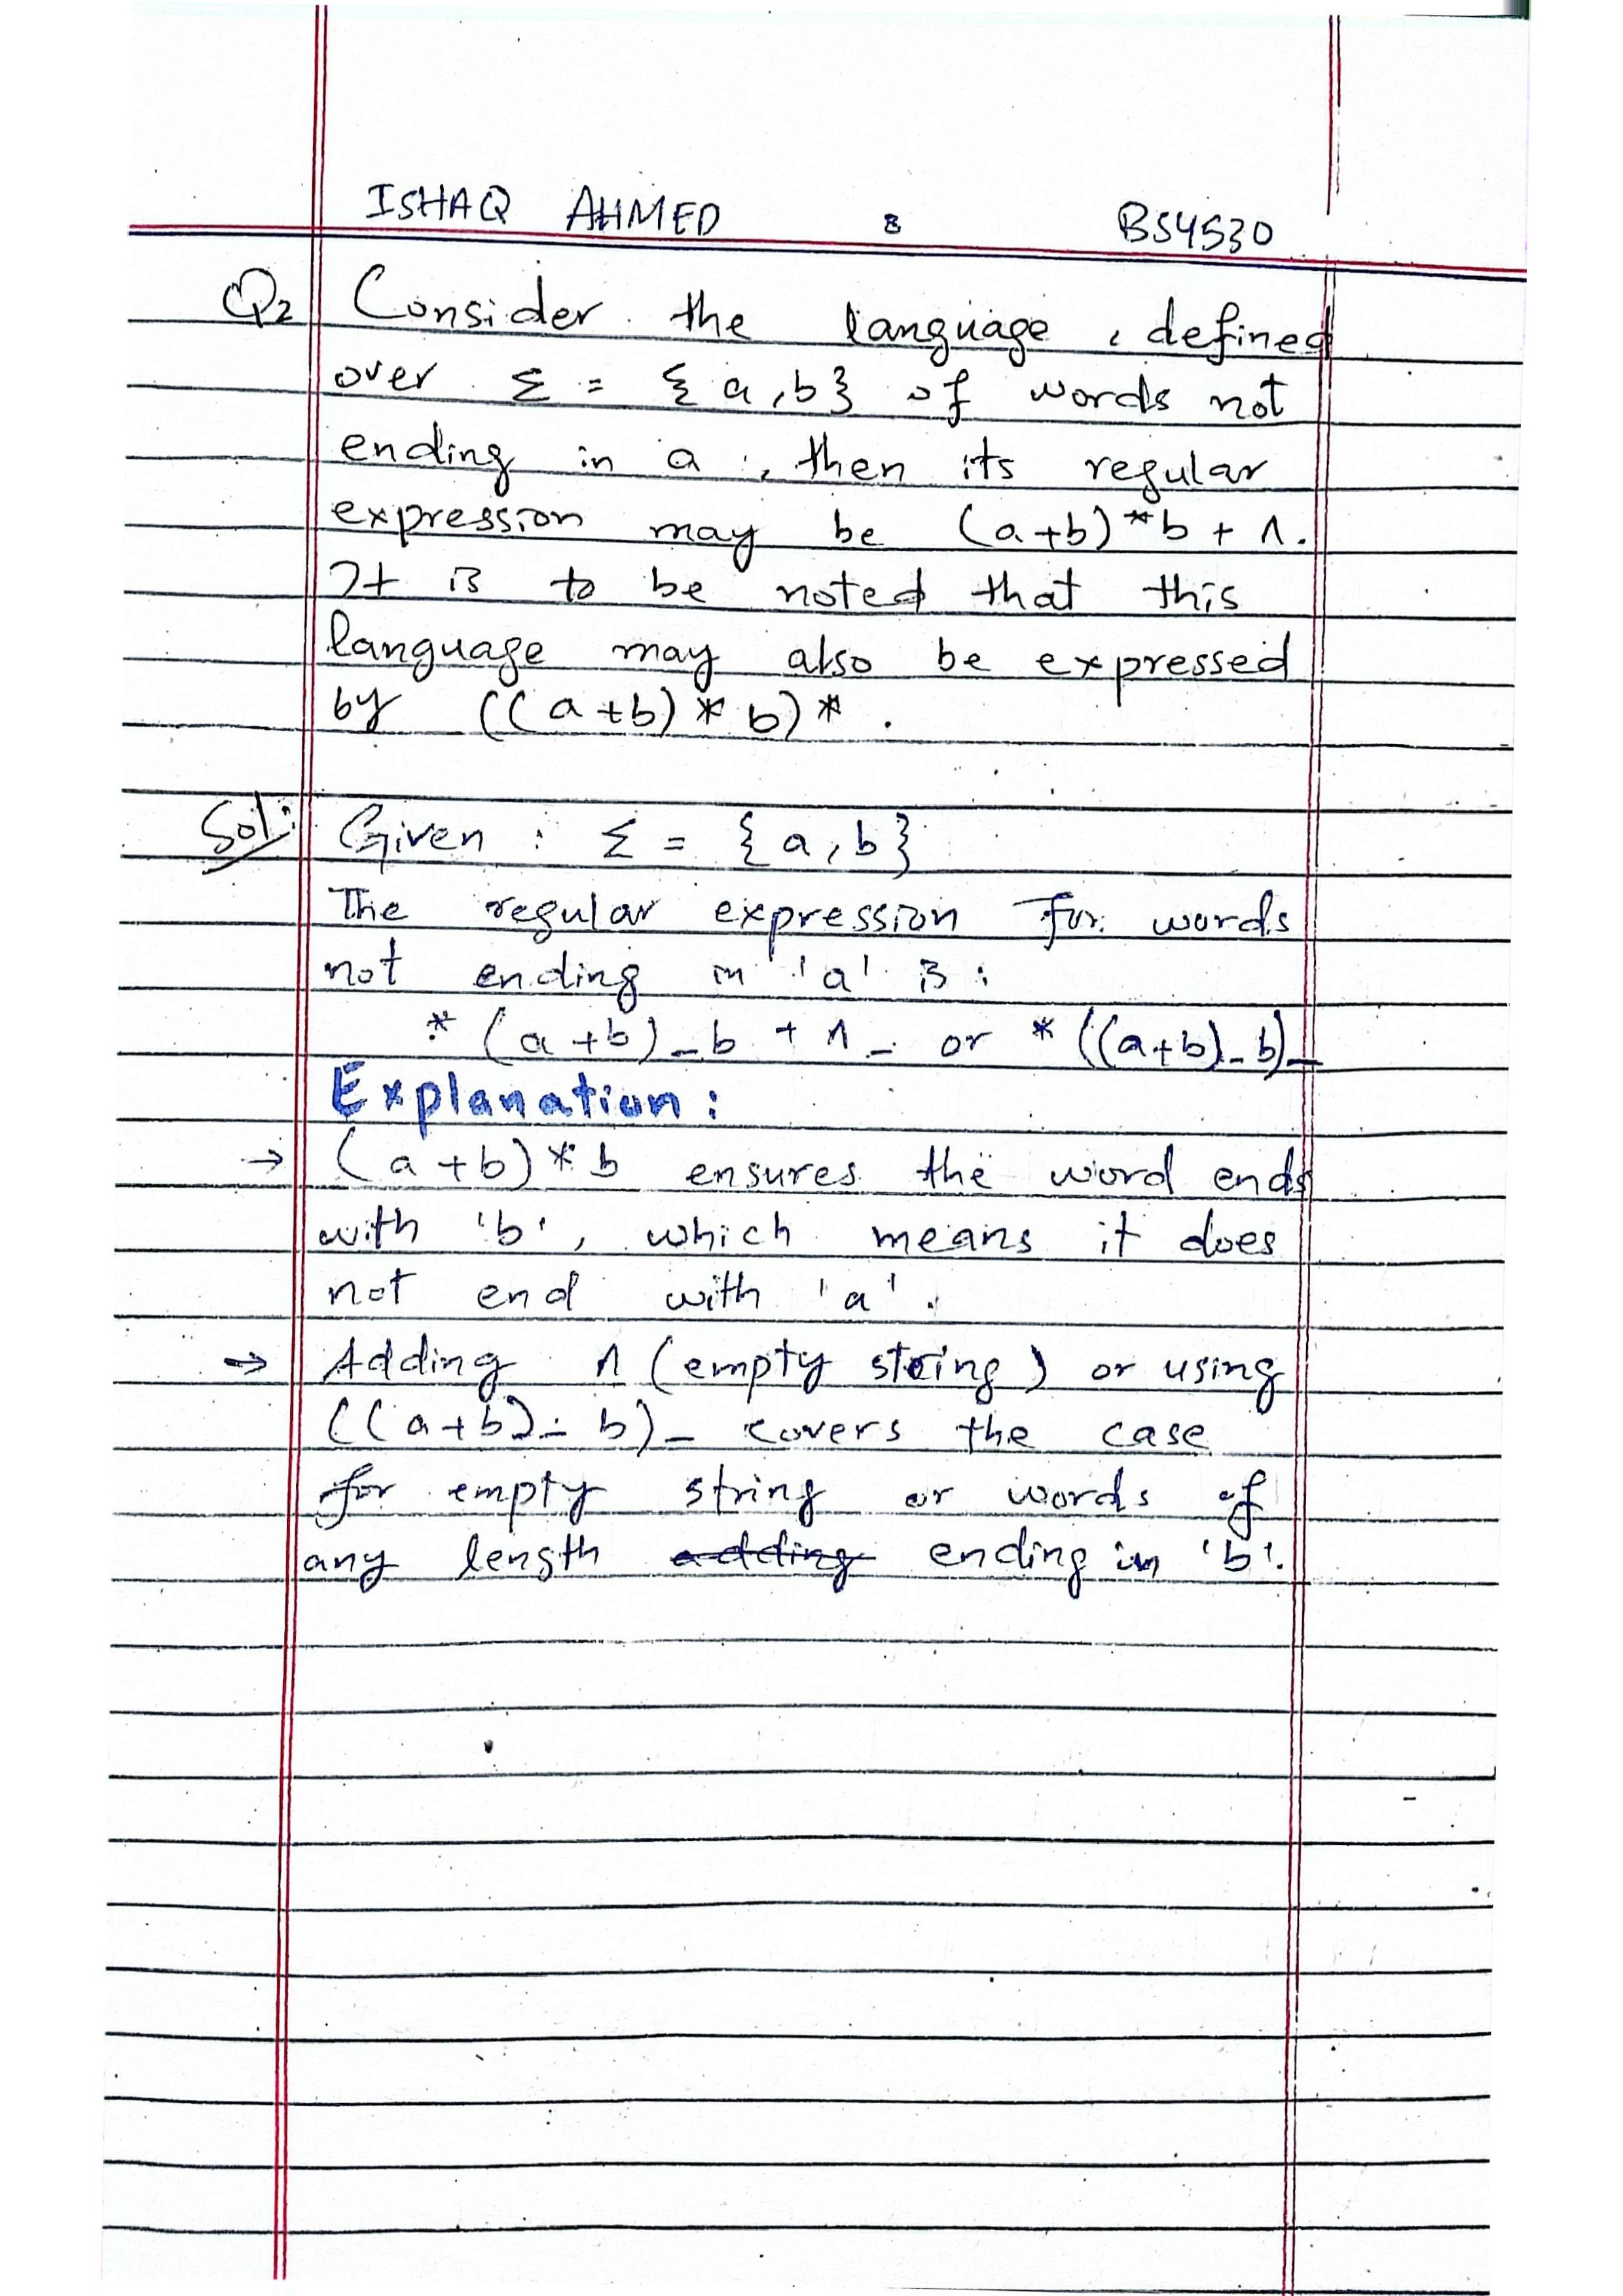 ISHAQ AHMED 8 BS4530
Q2 Consider the language, defined
over Σ = {a,b} of words not
ending in a, then its regular
expression may be (a+b)*b + Λ.
It is to be noted that this
language may also be expressed
by ((a+b)*b)*.
Sol: Given : Σ = {a,b}
The regular expression for words
not ending in 'a' is :
* (a+b)_b + Λ_ or * ((a+b)_b)_
Explanation :
→ (a+b)*b ensures the word ends
with 'b', which means it does
not end with 'a'.
→ Adding Λ (empty string) or using
((a+b)_b)_ covers the case
for empty string or words of
any length adding ending in 'b'.